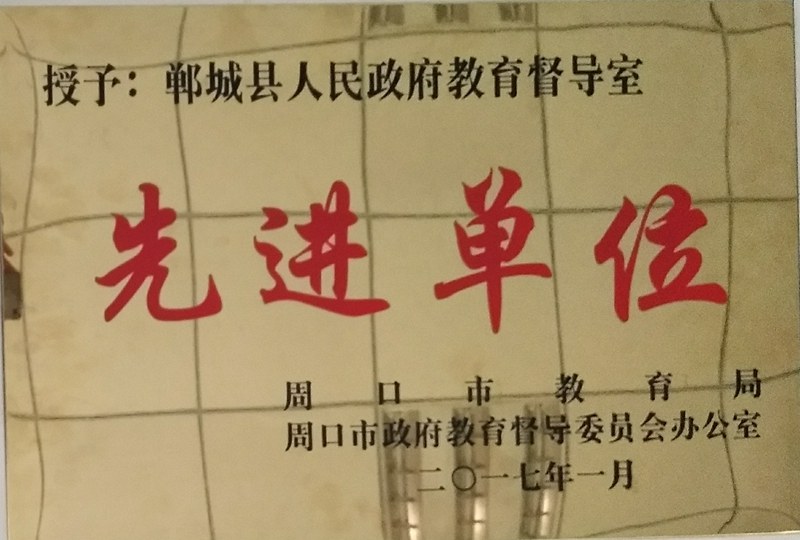 授予：郸城县人民政府教育督导室
先进单位
周口市教育局
周口市政府教育督导委员会办公室
二〇一七年一月